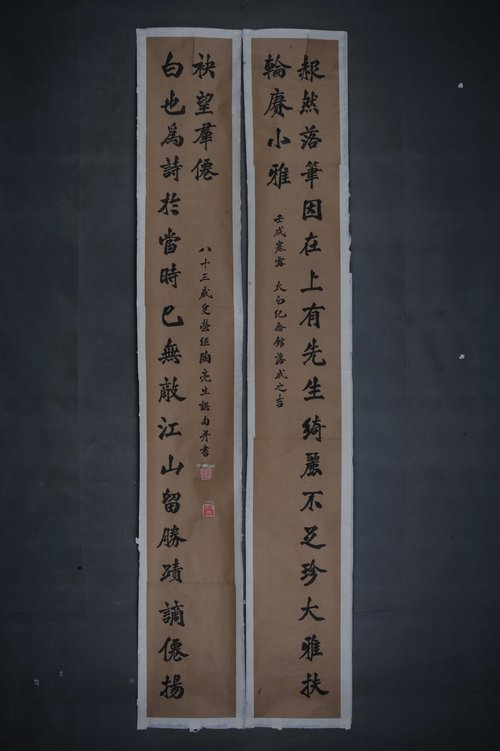 赧然落筆因在上有先生綺麗不足珍大雅扶
輪賡小雅
壬戌寒露 太白纪念館落成之吉
白也為詩於當時已無敵江山留勝蹟謫僊揚
袂望羣僊
八十三歲叟滎經陶亮生譔句并書